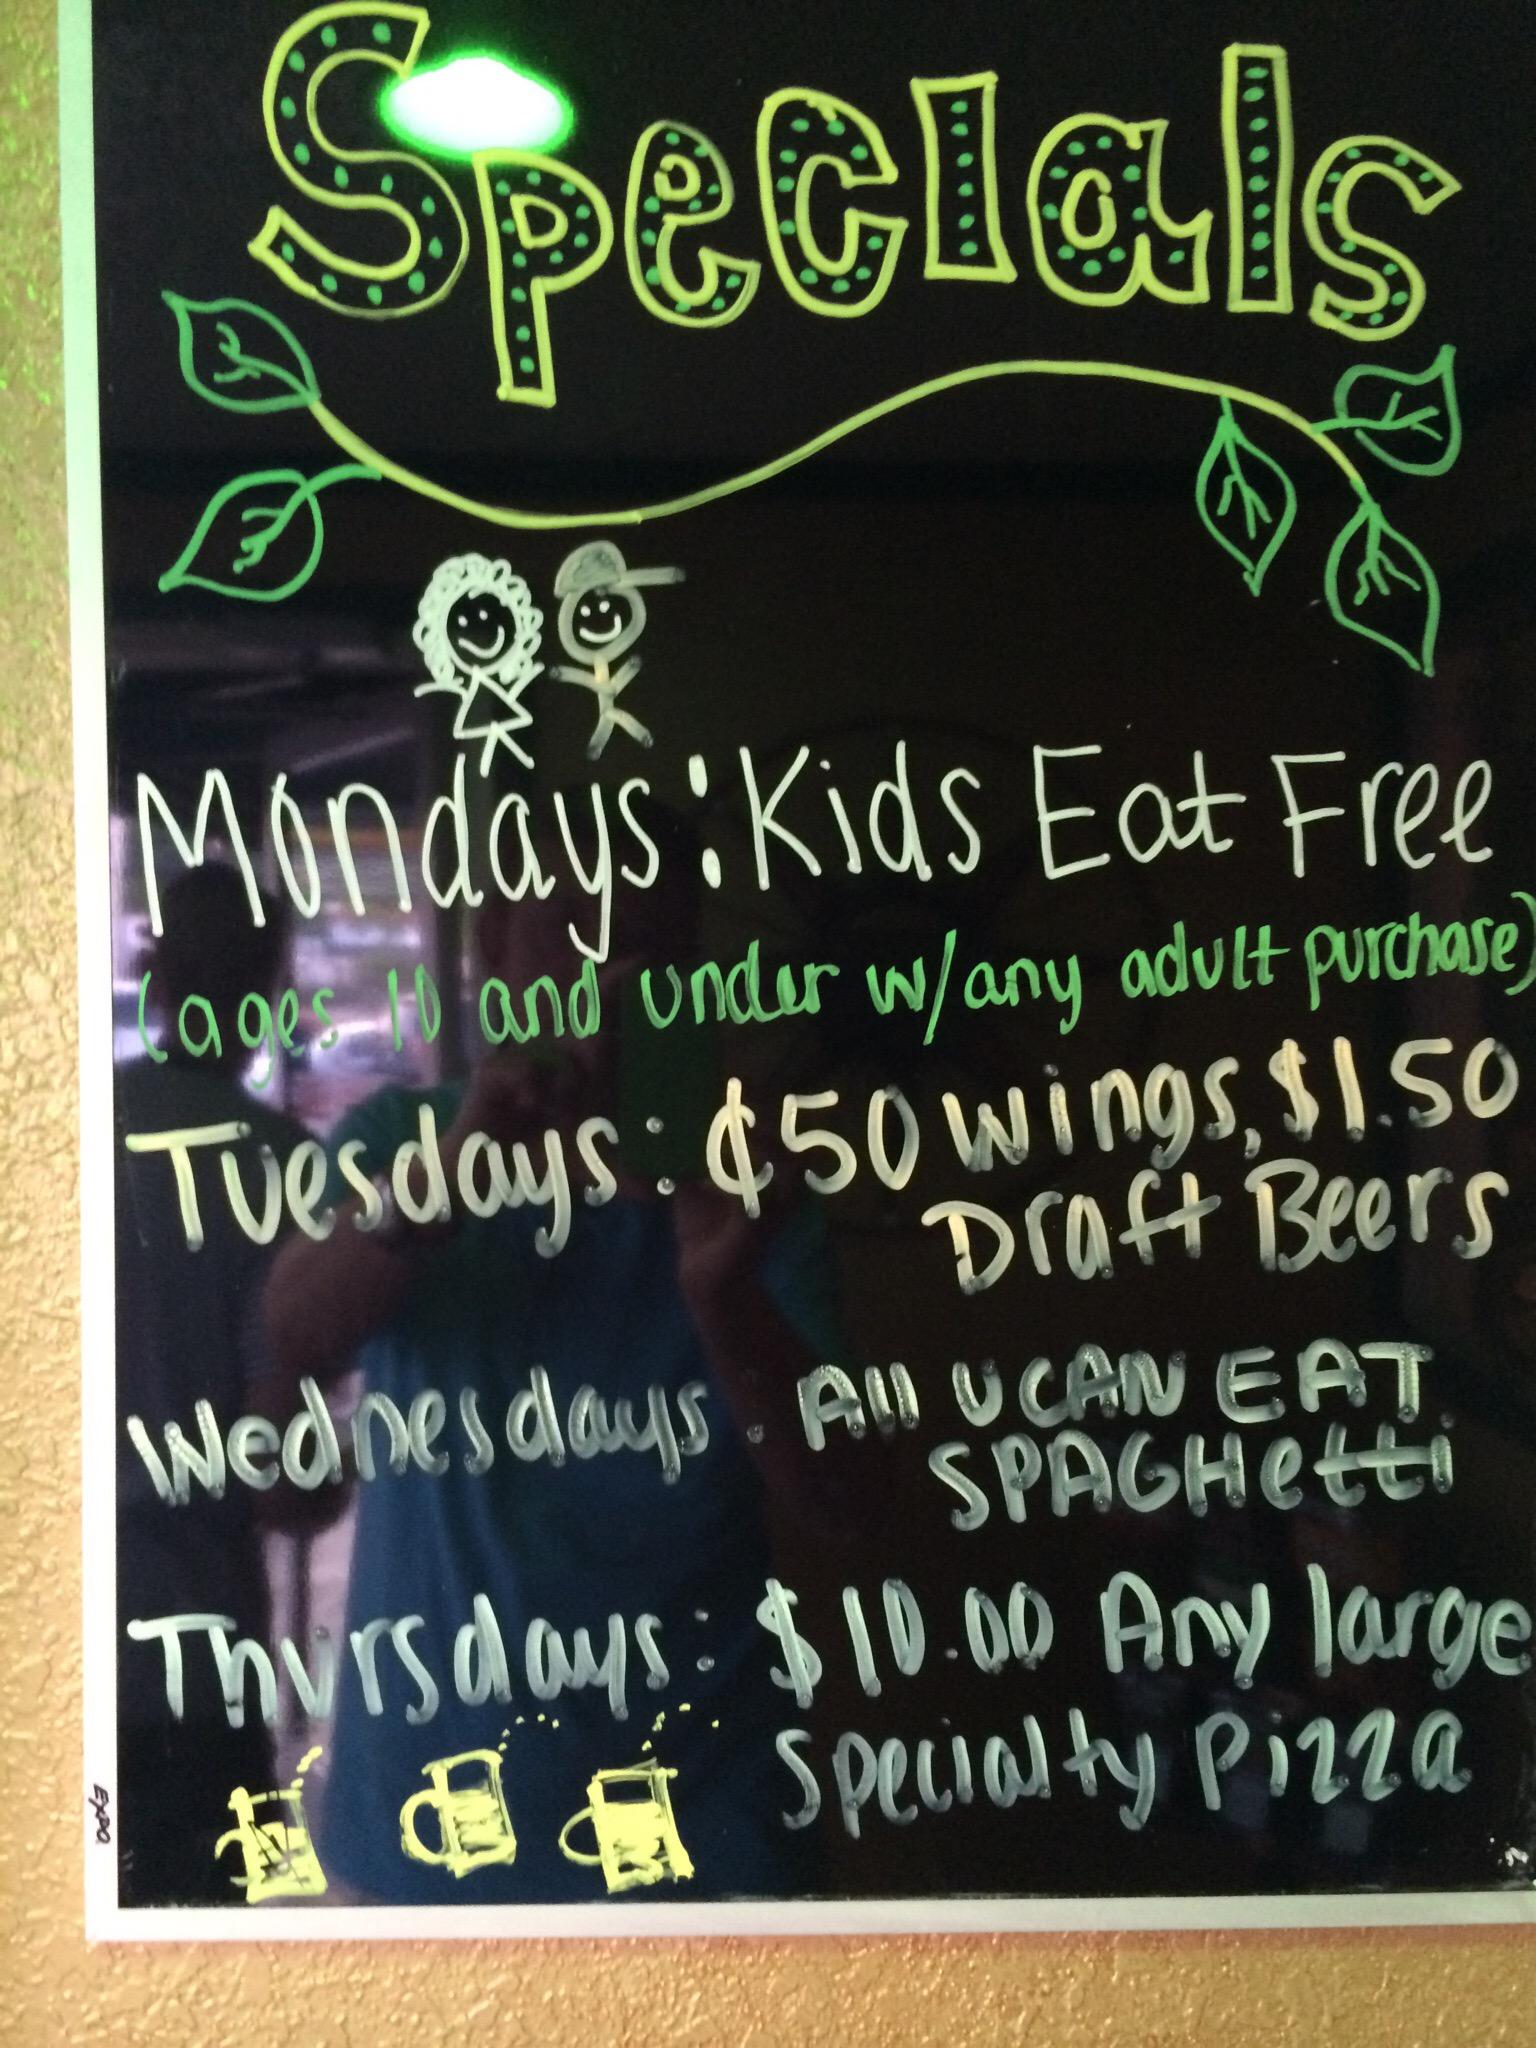 Specials
Mondays: Kids Eat Free
(ages 10 and under w/any adult purchase)
Tuesdays: ¢50 wings, $1.50
Draft Beers
Wednesdays: All U CAN EAT
SPAGHetti
Thursdays: $10.00 Any large
Specialty Pizza
EXPO